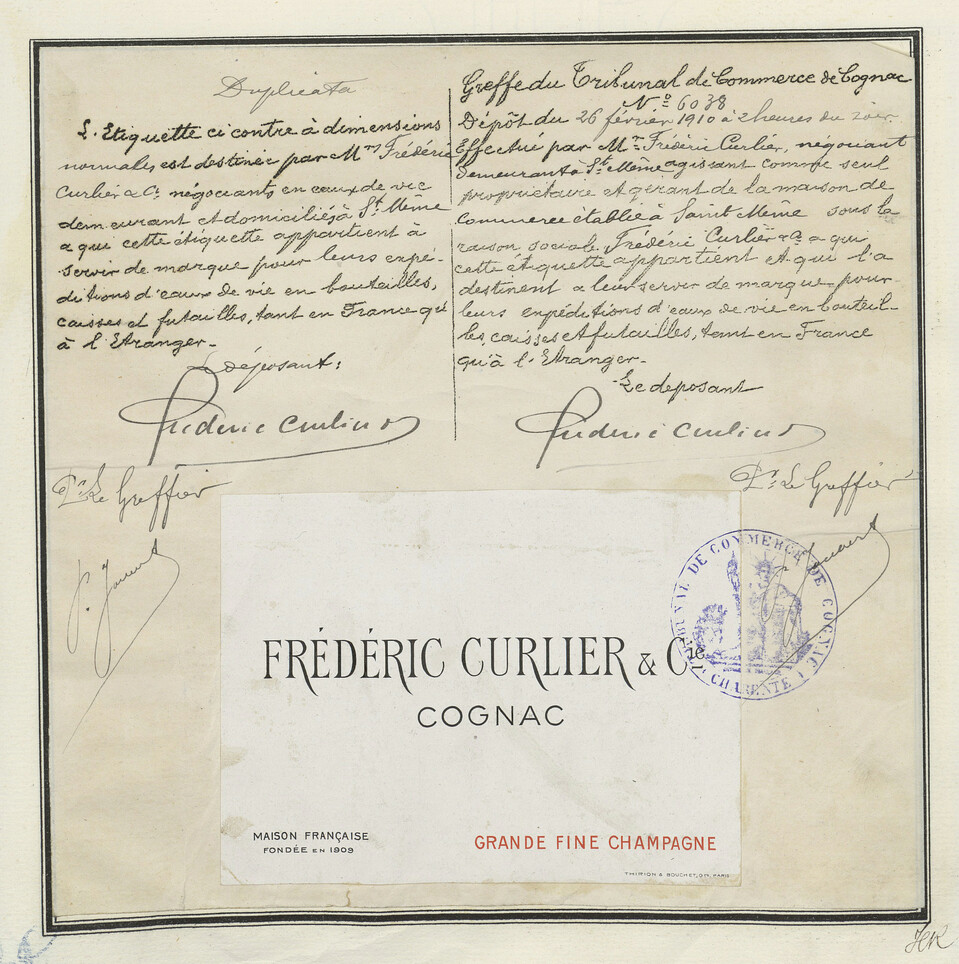 Duplicata
L'Etiquette ci contre à dimensions
normales est destinée par Mrs Frédéric
Curlier & Cie négociants en eaux de vie
demeurant et domiciliés à St Même
a qui cette étiquette appartient à
servir de marque pour leurs expé-
ditions d'eaux de vie en bouteilles,
caisses et futailles, tant en France qu'
à l'Etranger.
Le déposant:
Frédéric Curlier
Pr Le Greffier
Greffe du Tribunal de Commerce de Cognac
No 6038
Dépôt du 26 février 1910 à 2 heures du soir
Effectué par Mr Frédéric Curlier, négociant
demeurant à St Même agissant comme seul
propriétaire et gérant de la maison de
commerce établie à Saint Même sous la
raison sociale Frédéric Curlier & Cie a qui
cette étiquette appartient et qui l'a
destinent a leur server de marque pour
leurs expéditions d'eaux de vie en bouteil-
les, caisses et futailles, tant en France
qu'à l'Etranger-
Le deposant
Frédéric Curlier
Pr Le Greffier
TRIBUNAL DE COMMERCE DE COGNAC
CHARENTE
FRÉDÉRIC CURLIER & Cie
COGNAC
MAISON FRANÇAISE
FONDÉE EN 1909
GRANDE FINE CHAMPAGNE
THIRION & BOUCHET, Gr. PARIS
HR